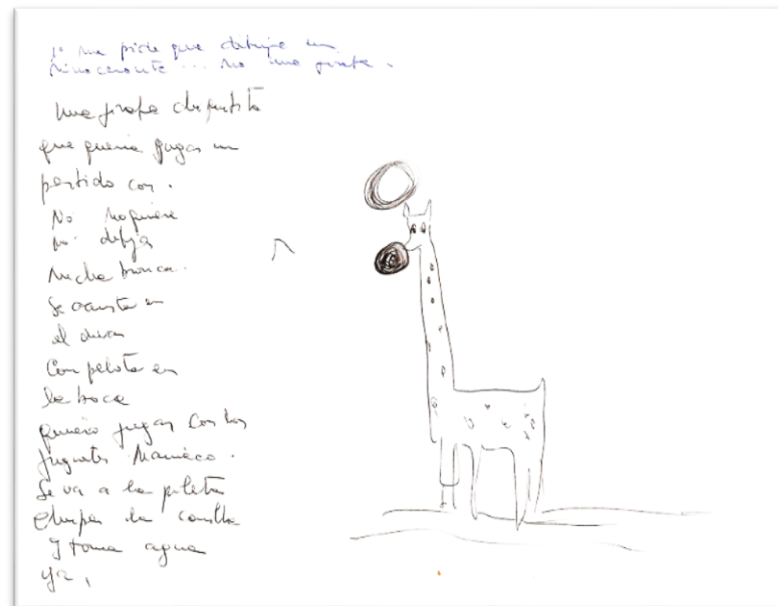 1º me pide que dibuje un
rinoceronte... no una jirafa.
Una jirafa chiquitita
que quería jugar un
partido con.
No no quiere
no dibuja
mucha bronca.
Se acuesta en
el divan
Con pelota en
la boca
quiero jugar con los
juguetes
Se va a la pileta
chupa la canilla
y toma agua
ya,